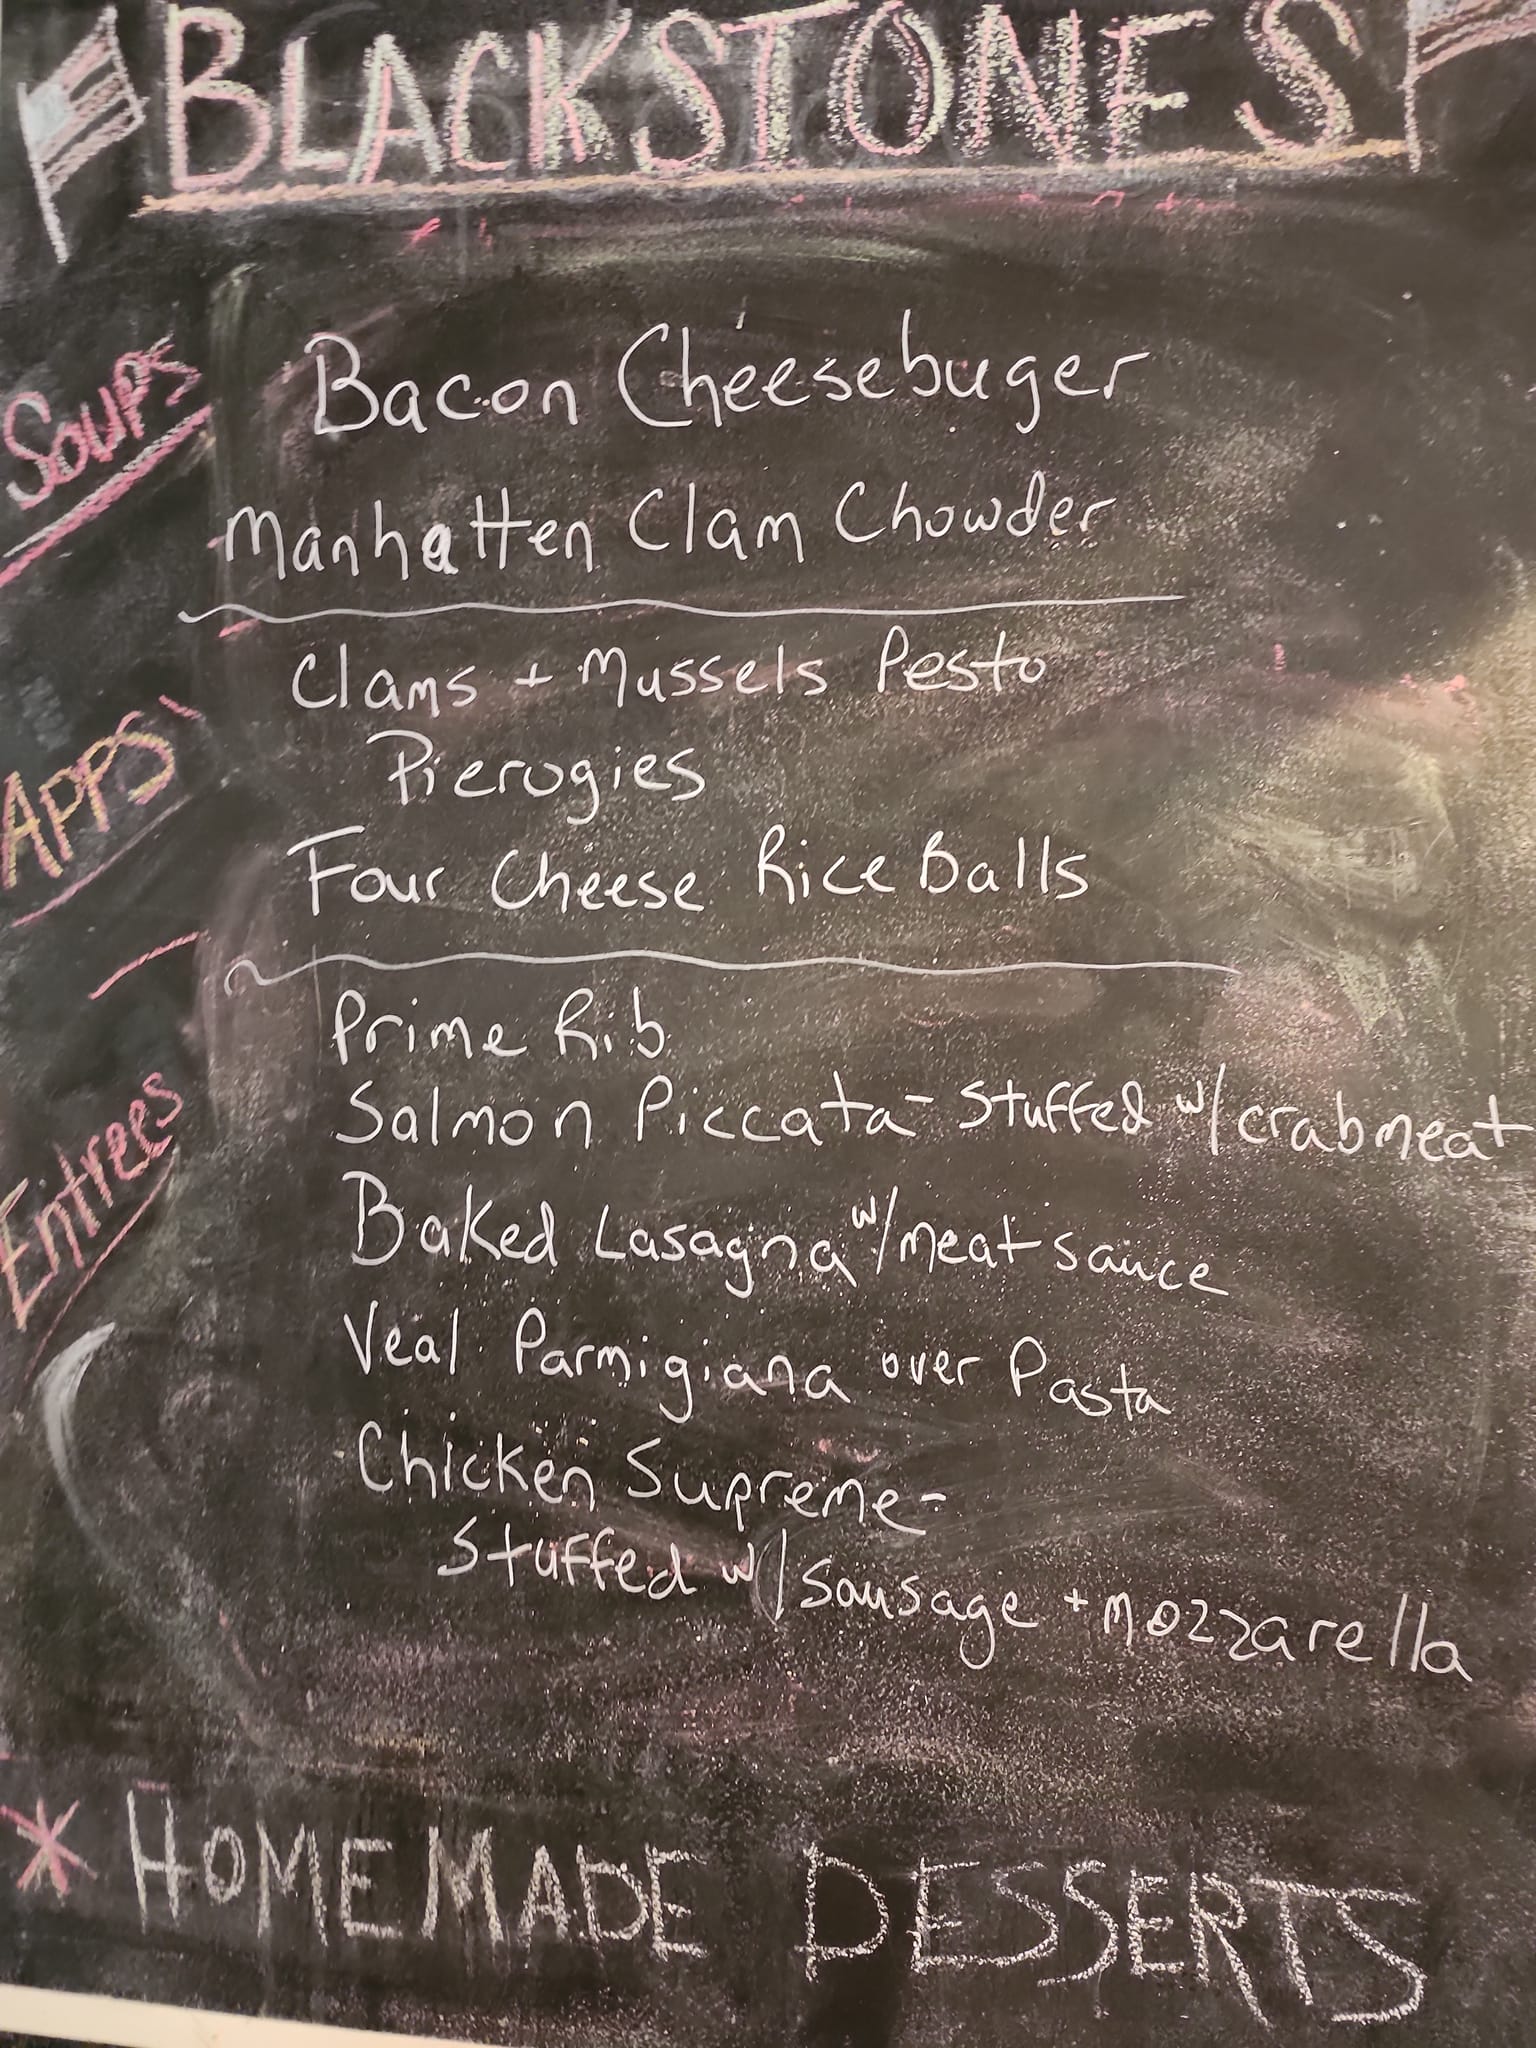 BLACKSTONES
Soups
Bacon Cheesebuger
Manhatten Clam Chowder
APPS
Clams + Mussels Pesto
Pierogies
Four Cheese Rice Balls
Entrees
Prime Rib
Salmon Piccata - Stuffed w/ crabmeat
Baked Lasagna w/ meat sauce
Veal Parmigiana over Pasta
Chicken Supreme-
Stuffed w/ sausage + mozzarella
* HOMEMADE DESSERTS